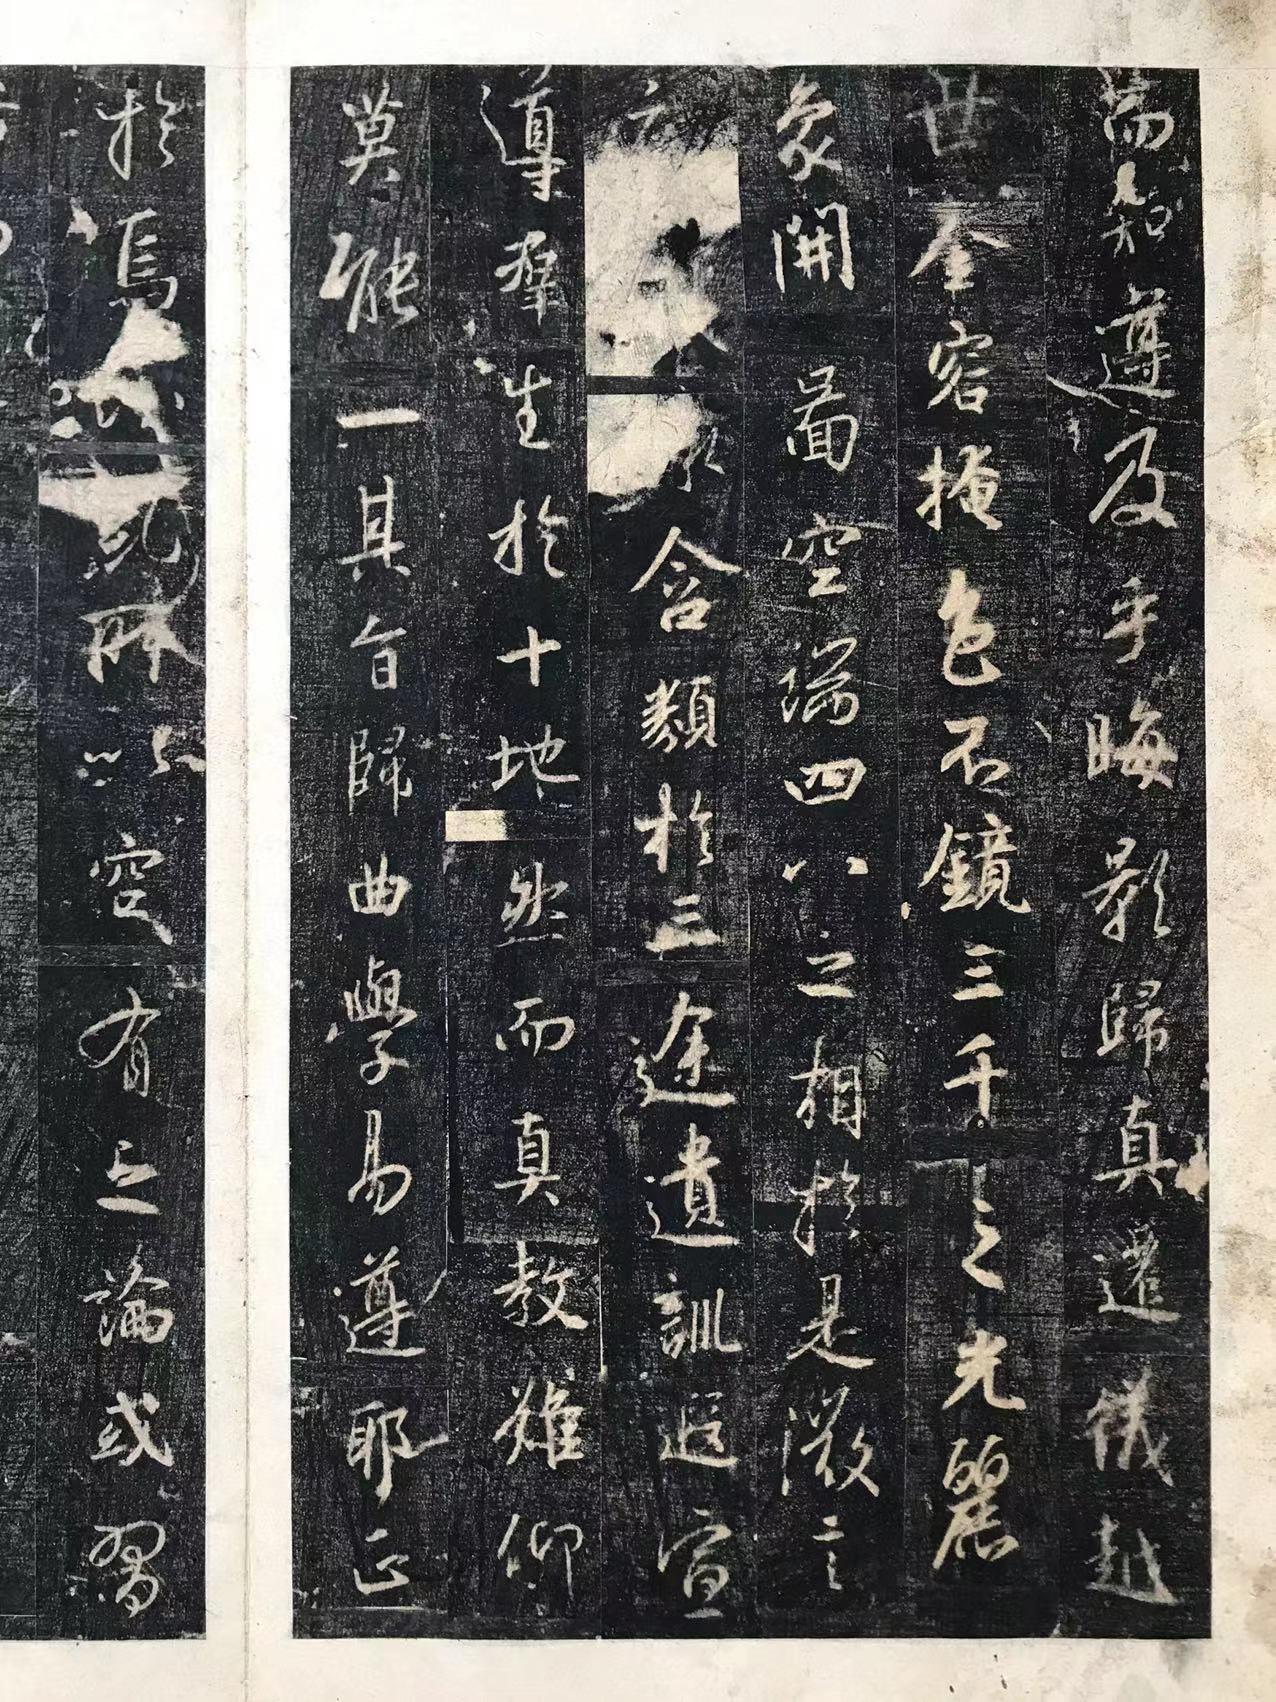 而知遵及乎晦影歸真遷儀越
世金容掩色不鏡三千之光麗
象開圖空端四八之相於是微言
含類於三途遺訓遐宣
導羣生於十地然而真教難仰
莫能一其旨歸曲學易遵耶正
於焉所以空有之論或習